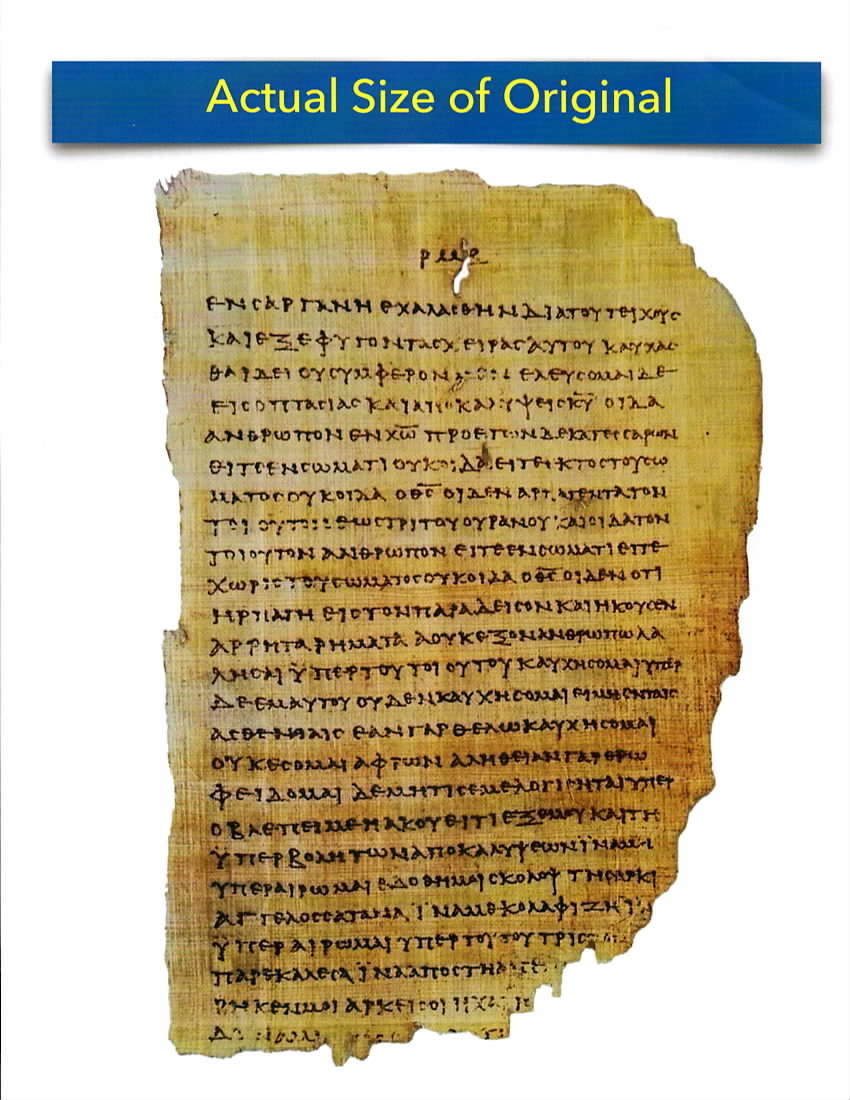 ΕΝ ϹΑΡΓΑΝΗ ΕΧΑΛΑϹΘΗΝ ΔΙΑ ΤΟΥ ΤΕΙΧΟΥϹ
ΚΑΙ ΕΞΕΦΥΓΟΝ ΤΑϹ ΧΕΙΡΑϹ ΑΥΤΟΥ ΚΑΥΧΑϹ
ΘΑΙ ΔΕΙ ΟΥ ϹΥΜΦΕΡΟΝ ΕΛΕΥϹΟΜΑΙ ΔΕ
ΕΙϹ ΟΠΤΑϹΙΑϹ ΚΑΙ ΑΠΟΚΑΛΥΨΕΙϹ Κ̅Υ̅ ΟΙΔΑ
ΑΝΘΡΩΠΟΝ ΕΝ Χ̅Ω̅ ΠΡΟ ΕΤΩΝ ΔΕΚΑΤΕϹϹΑΡΩΝ
ΕΙΤΕ ΕΝ ϹΩΜΑΤΙ ΟΥΚ ΟΙΔΑ ΕΙΤΕ ΕΚΤΟϹ ΤΟΥ ϹΩ
ΜΑΤΟϹ ΟΥΚ ΟΙΔΑ Ο Θ̅Ϲ̅ ΟΙΔΕΝ ΑΡΠΑΓΕΝΤΑ ΤΟΝ
ΤΟΙΟΥΤΟΝ ΕΩϹ ΤΡΙΤΟΥ ΟΥΡΑΝΟΥ ΚΑΙ ΟΙΔΑ ΤΟΝ
ΤΟΙΟΥΤΟΝ ΑΝΘΡΩΠΟΝ ΕΙΤΕ ΕΝ ϹΩΜΑΤΙ ΕΙΤΕ
ΧΩΡΙϹ ΤΟΥ ϹΩΜΑΤΟϹ ΟΥΚ ΟΙΔΑ Ο Θ̅Ϲ̅ ΟΙΔΕΝ ΟΤΙ
ΗΡΠΑΓΗ ΕΙϹ ΤΟΝ ΠΑΡΑΔΕΙϹΟΝ ΚΑΙ ΗΚΟΥϹΕΝ
ΑΡΡΗΤΑ ΡΗΜΑΤΑ Α ΟΥΚ ΕΞΟΝ ΑΝΘΡΩΠΩ ΛΑ
ΛΗϹΑΙ ΫΠΕΡ ΤΟΥ ΤΟΙΟΥΤΟΥ ΚΑΥΧΗϹΟΜΑΙ ΥΠΕΡ
ΔΕ ΕΜΑΥΤΟΥ ΟΥΔΕΝ ΚΑΥΧΗϹΟΜΑΙ ΕΙ ΜΗ ΕΝ ΤΑΙϹ
ΑϹΘΕΝΕΙΑΙϹ ΕΑΝ ΓΑΡ ΘΕΛΩ ΚΑΥΧΗϹΟΜΑΙ
ΟΥΚ ΕϹΟΜΑΙ ΑΦΡΩΝ ΑΛΗΘΕΙΑΝ ΓΑΡ ΕΡΩ
ΦΕΙΔΟΜΑΙ ΔΕ ΜΗ ΤΙϹ ΕΜΕ ΛΟΓΙϹΗΤΑΙ ΥΠΕΡ
Ο ΒΛΕΠΕΙ ΜΕ Η ΑΚΟΥΕΙ ΤΙ ΕΞ ΕΜΟΥ ΚΑΙ ΤΗ
ΫΠΕΡΒΟΛΗ ΤΩΝ ΑΠΟΚΑΛΥΨΕΩΝ ΪΝΑ ΜΗ
ΥΠΕΡΑΙΡΩΜΑΙ ΕΔΟΘΗ ΜΟΙ ϹΚΟΛΟΨ ΤΗ ϹΑΡΚΙ
ΑΓΓΕΛΟϹ ϹΑΤΑΝΑ ΪΝΑ ΜΕ ΚΟΛΑΦΙΖΗ
ΫΠΕΡΑΙΡΩΜΑΙ ΥΠΕΡ ΤΟΥΤΟΥ ΤΡΙϹ
ΠΑΡΕΚΑΛΕϹΑ ΪΝΑ ΑΠΟϹΤΗ
ΡΗΚΕΝ ΜΟΙ ΑΡΚΕΙ ϹΟΙ Η ΧΑ
Actual Size of Original